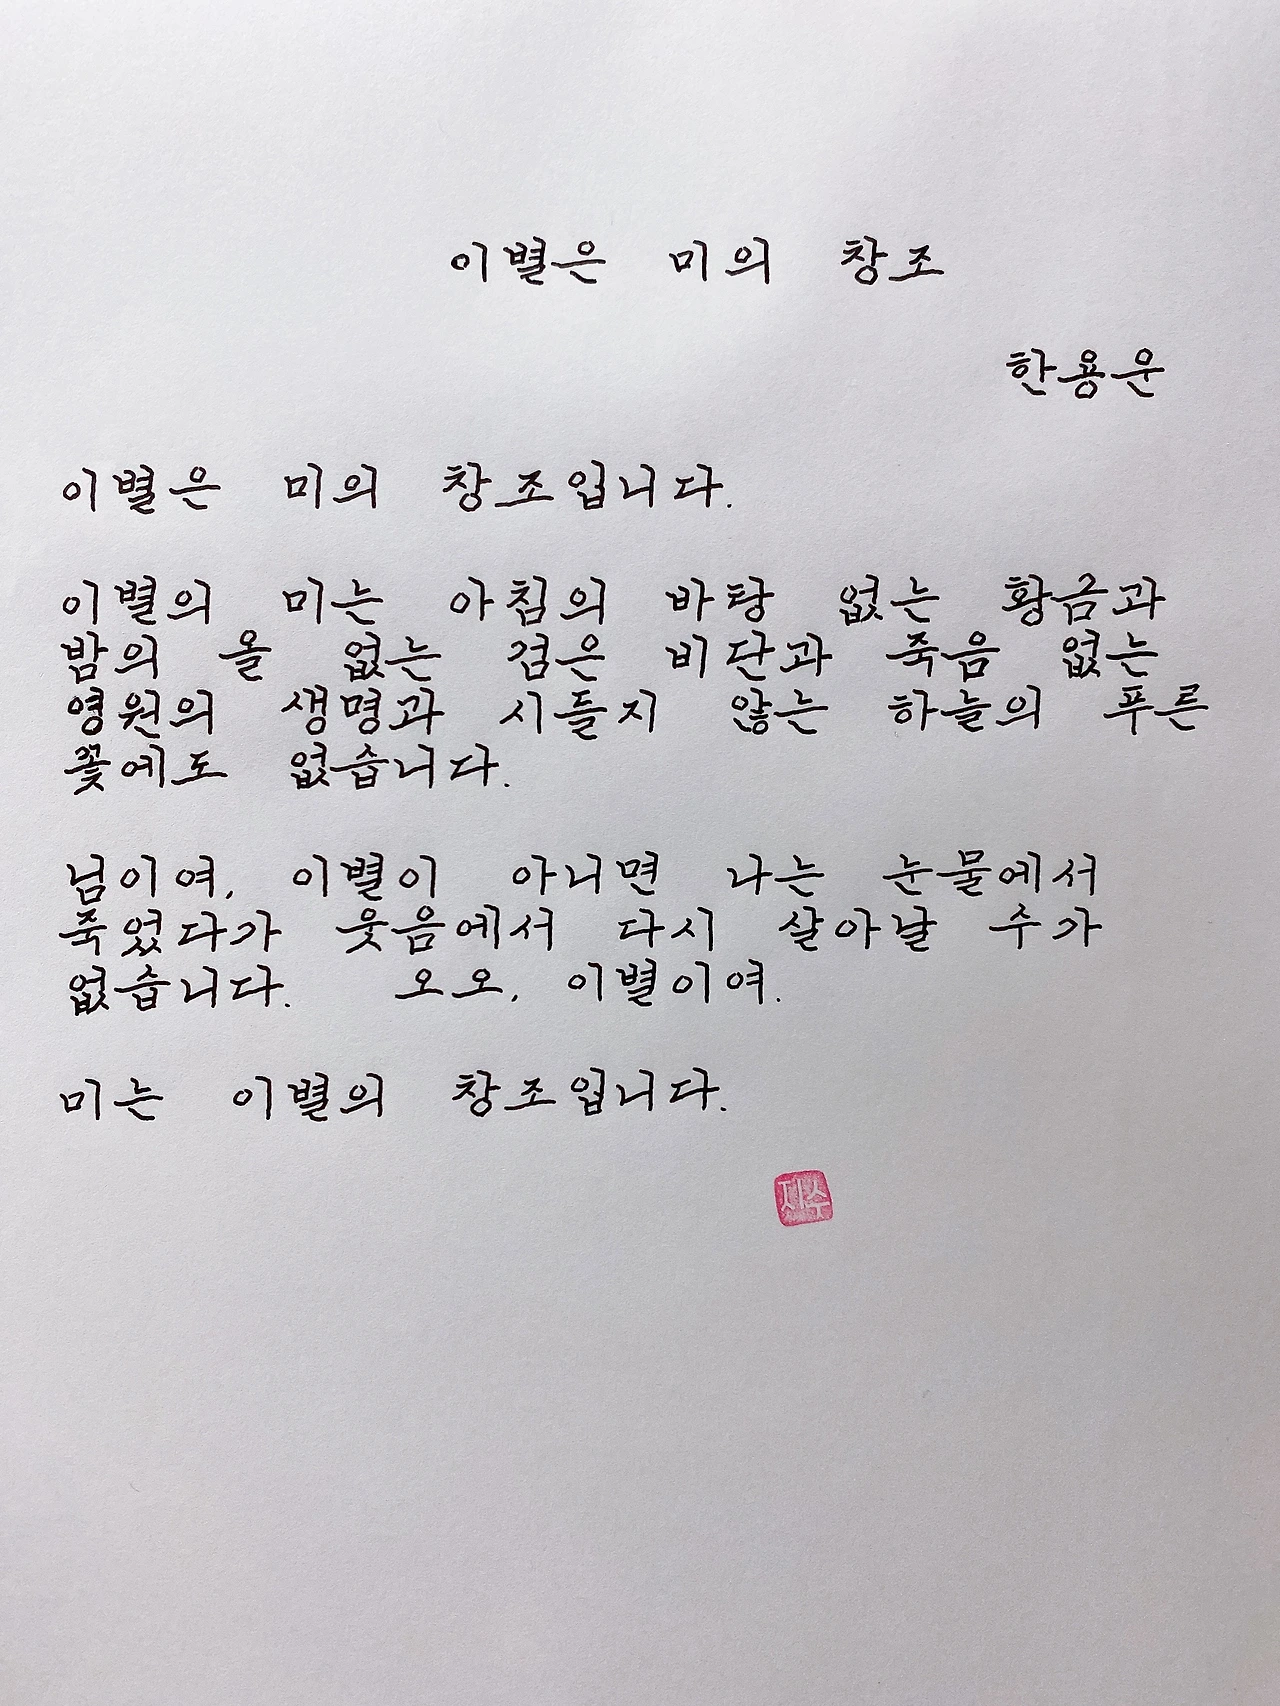 이별은 미의 창조
한용운
이별은 미의 창조입니다.
이별의 미는 아침의 바탕 없는 황금과
밤의 올 없는 검은 비단과 죽음 없는
영원의 생명과 시들지 않는 하늘의 푸른
꽃에도 없습니다.
님이여, 이별이 아니면 나는 눈물에서
죽었다가 웃음에서 다시 살아날 수가
없습니다. 오오, 이별이여.
미는 이별의 창조입니다.